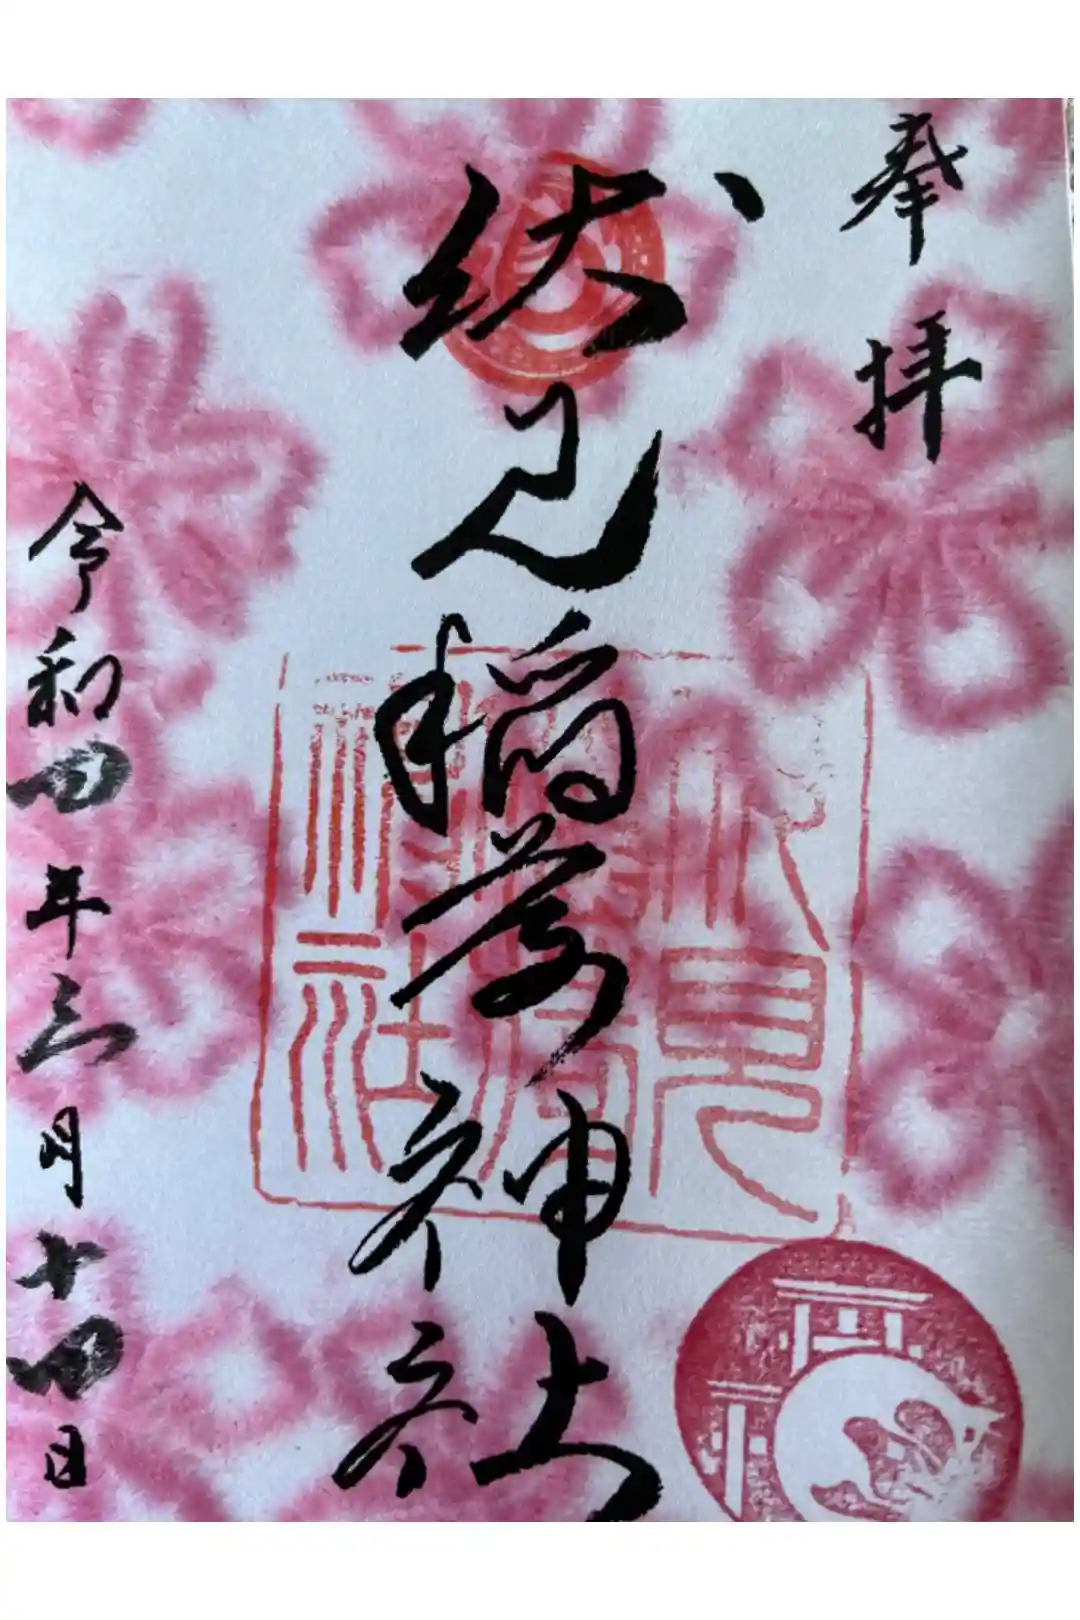 奉拝
伏見稲荷神社
令和四年三月十四日